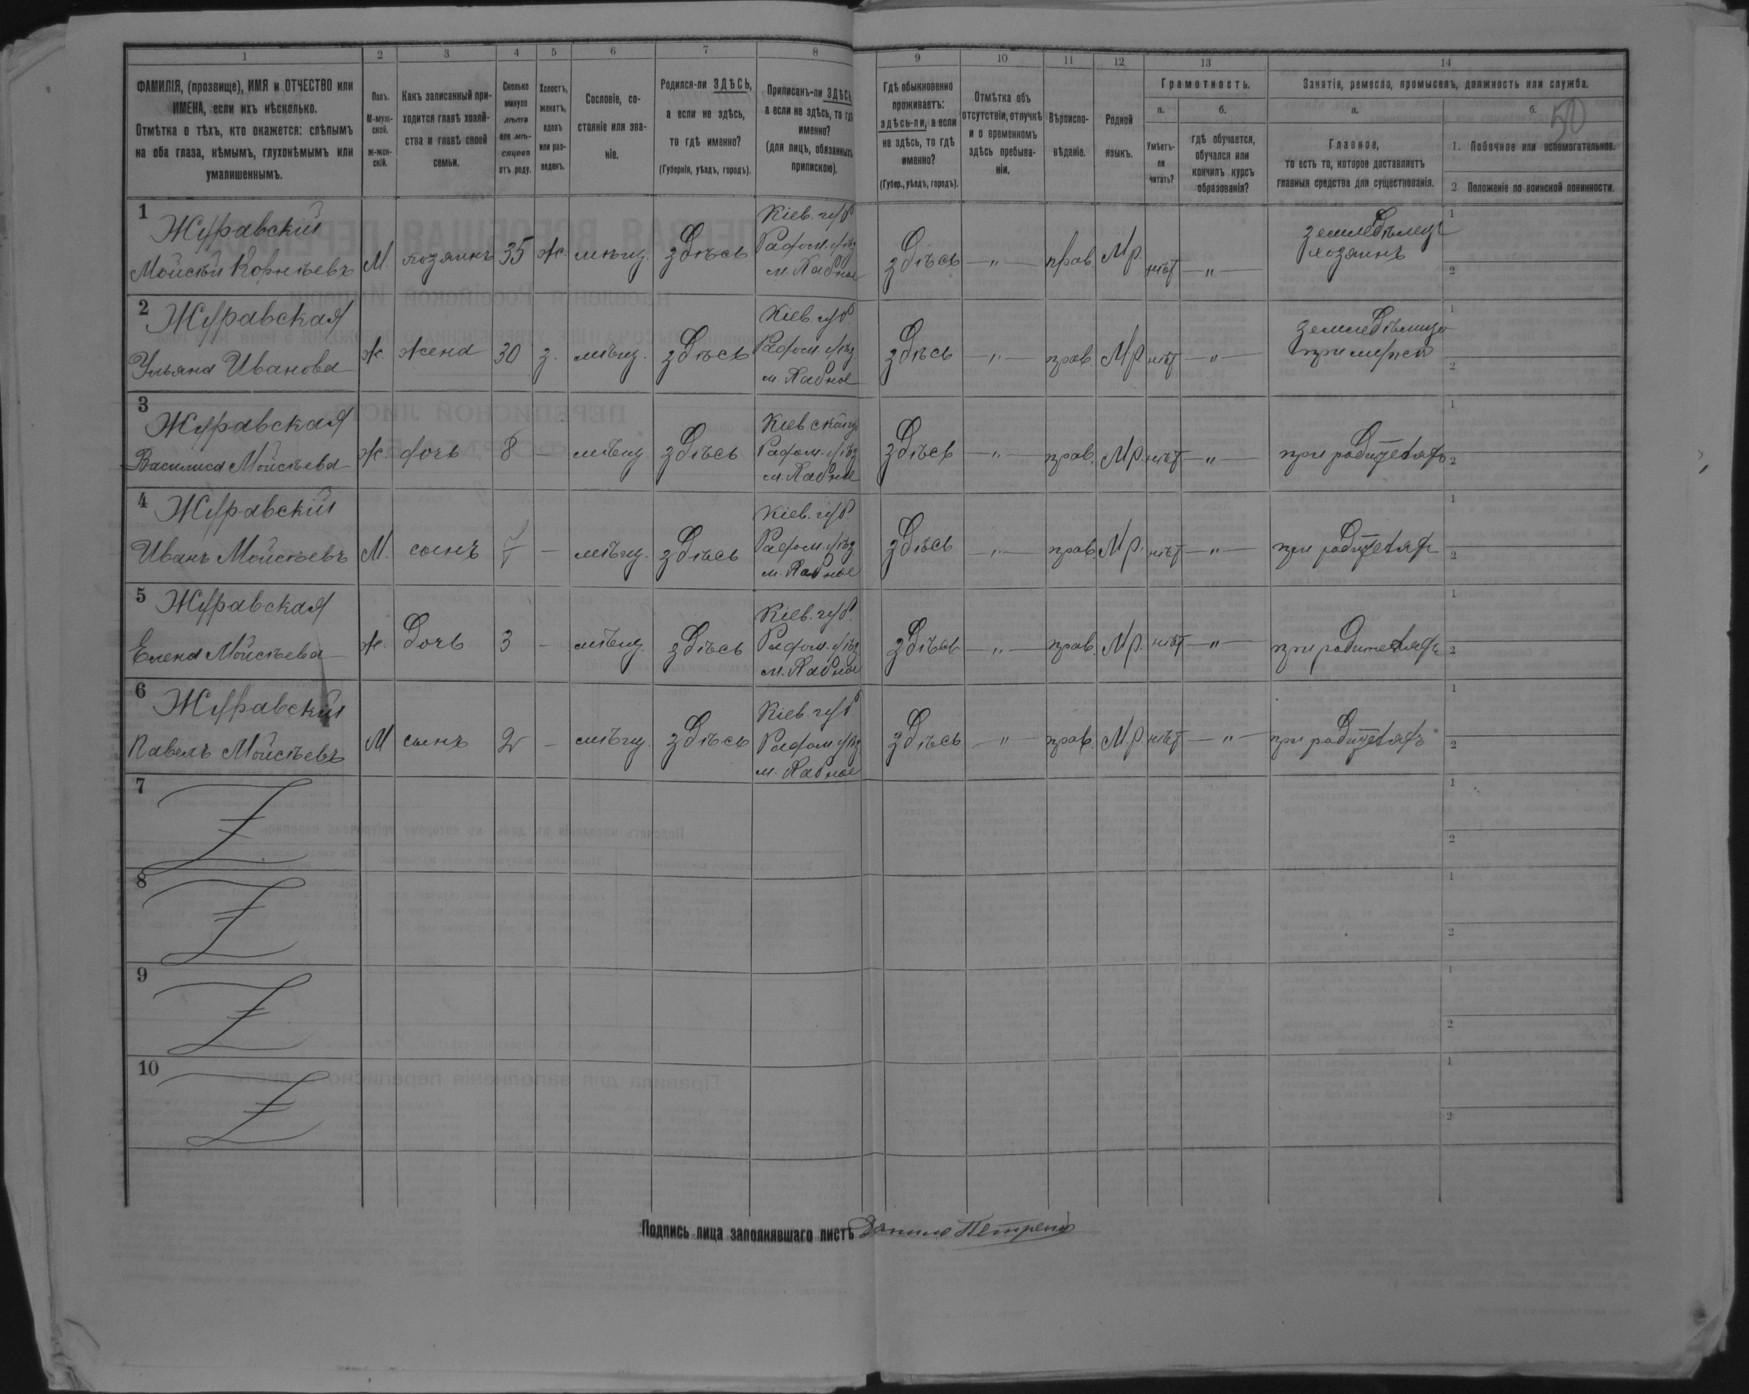 1 2 3 4 5 6 7 8 9 10 11 12 13 14
ФАМИЛІЯ, (прозвище), ИМЯ и ОТЧЕСТВО или
ИМЕНА, если ихъ нѣсколько.
Отмѣтка о тѣхъ, кто окажется: слѣпымъ
на оба глаза, нѣмымъ, глухонѣмымъ или
умалишеннымъ.
Полъ.
М-муж-
ской.
ж-жен-
скій.
Какъ записанный при-
ходится главѣ хозяй-
ства и главѣ своей
семьи.
Сколько
минуло
лѣтъ
или мѣ-
сяцевъ
отъ роду.
Холостъ,
женатъ,
вдовъ
или раз-
веденъ.
Сословіе, со-
стояніе или зва-
ніе.
Родился-ли ЗДѢСЬ,
а если не здѣсь,
то гдѣ именно?
(Губернія, уѣздъ, городъ).
Приписанъ-ли ЗДѢСЬ
а если не здѣсь, то гдѣ
именно?
(для лицъ, обязанныхъ
припискою).
Гдѣ обыкновенно
проживаетъ:
здѣсь-ли, а если
не здѣсь, то гдѣ
именно?
(Губер., уѣздъ, городъ).
Отмѣтка объ
отсутствіи, отлучкѣ
и о временномъ
здѣсь пребыва-
ніи.
Вѣроиспо-
вѣданіе.
Родной
языкъ.
Грамотность.
а.
Умѣетъ-
ли
читать?
б.
гдѣ обучается,
обучался или
кончилъ курсъ
образованія?
Занятія, ремесло, промыселъ, должность или служба.
а.
Главное,
то есть то, которое доставляетъ
главныя средства для существованія.
б.
50
1. Побочное или вспомогательное.
2 Положеніе по воинской повинности.
1 Журавскій
Мойсѣй Корнѣевъ М. хозяинъ 35 ж. мѣщ. здѣсь
Кіев. губ
Радом. уѣзд
м. Хабное
здѣсь — „ — прав. Мр. нѣт — „ —
земледѣлецъ
хозяинъ
1
2
2 Журавская
Ульяна Иванова ж. жена 30 з. мѣщ. здѣсь
Кіев. губ
Радом. уѣзд
м. Хабное
здѣсь — „ — прав. Мр. нѣт — „ —
1
2
3 Журавская
Василиса Мойсѣева ж. дочь 8 — мѣщ здѣсь
Радом. уѣзд
м. Хабное
здѣсь — „ — прав. Мр. нѣт — „ —
при родителяхъ
1
2
4 Журавскій
Иванъ Мойсѣевъ М. сынъ — мѣщ. здѣсь
Кіев. губ.
Радом. уѣзд
м. Хабное
здѣсь — „ — прав. Мр. нѣт — „ —
при родителяхъ
1
2
5 Журавская
Елена Мойсѣева ж. дочь 3 — мѣщ. здѣсь
Кіев. губ.
Радом. уѣзд
м. Хабное
здѣсь — „ — прав. Мр. нѣт — „ —
при родителяхъ
1
2
6 Журавскій
Павелъ Мойсѣевъ М сынъ 2 — мѣщ. здѣсь
Кіев. губ
Радом. уѣзд
м. Хабное
здѣсь — „ — прав. Мр. нѣт — „ —
при родителяхъ
1
2
7
1
2
8
1
2
9
1
2
10
1
2
Подпись лица заполнявшаго листъ